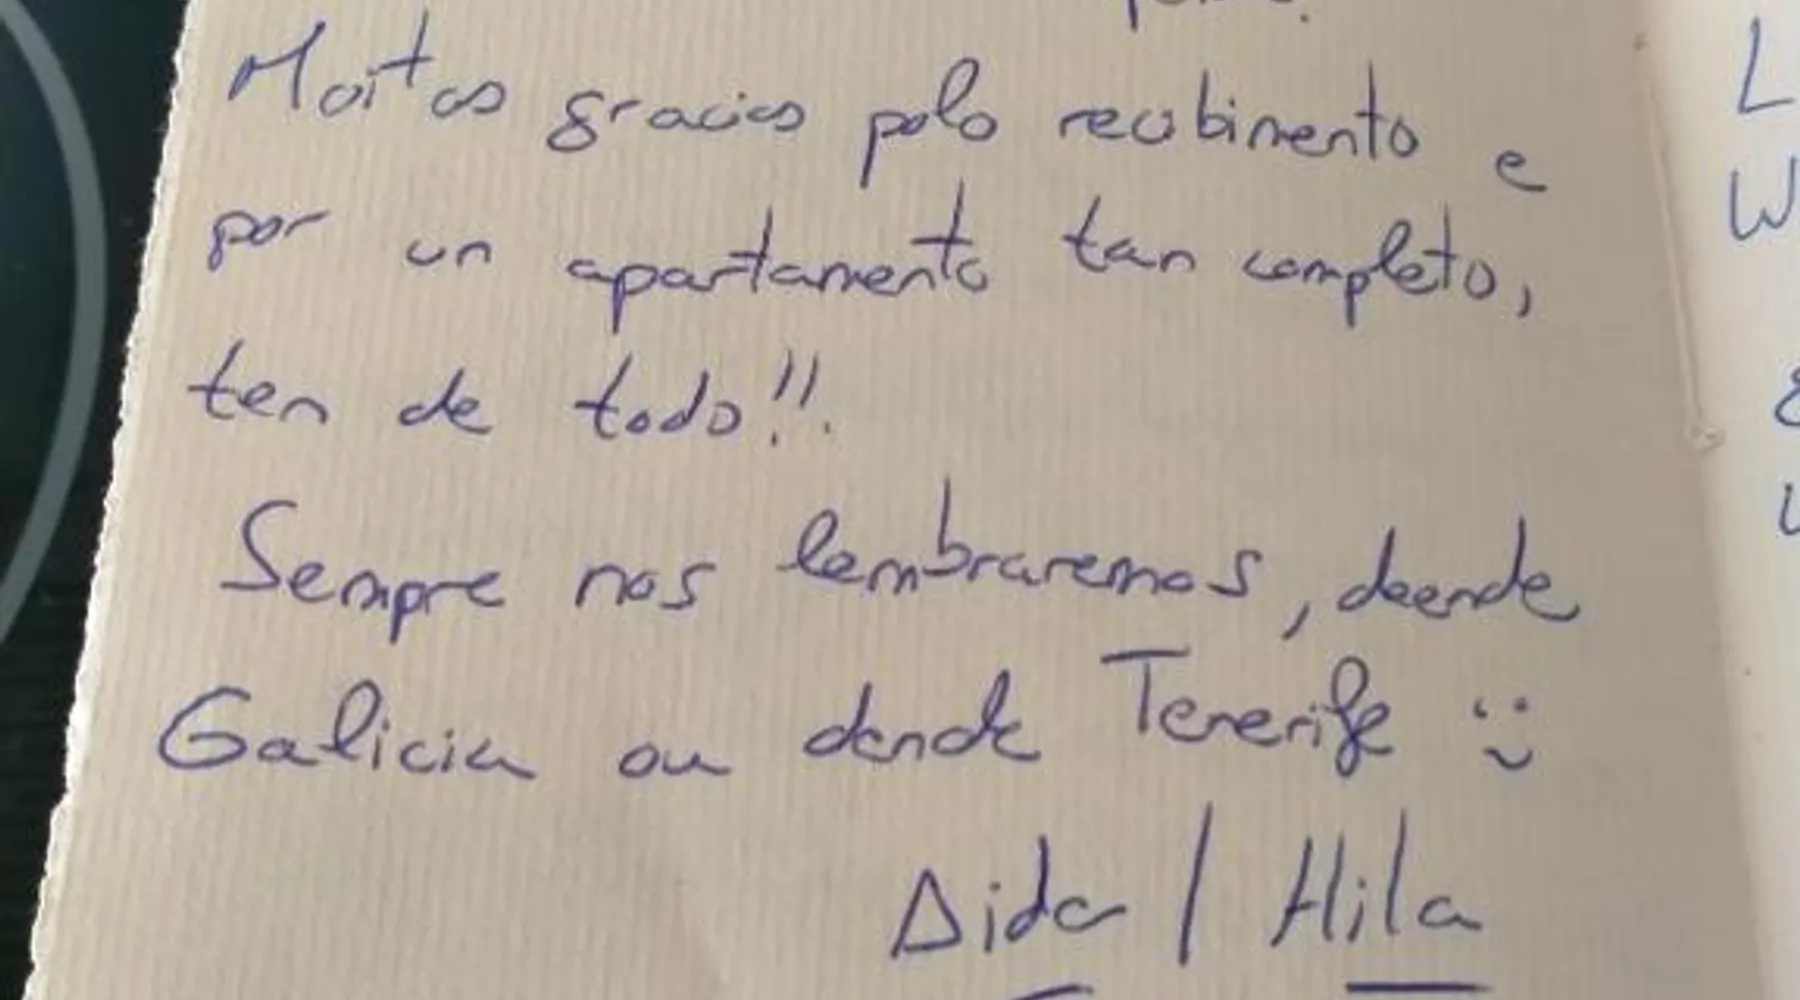 Moitas gracias polo recibimento e
por un apartamento tan completo,
ten de todo!!.
Sempre nos lembraremos, deende
Galicia ou dende Tenerife :)
Aida / Hila